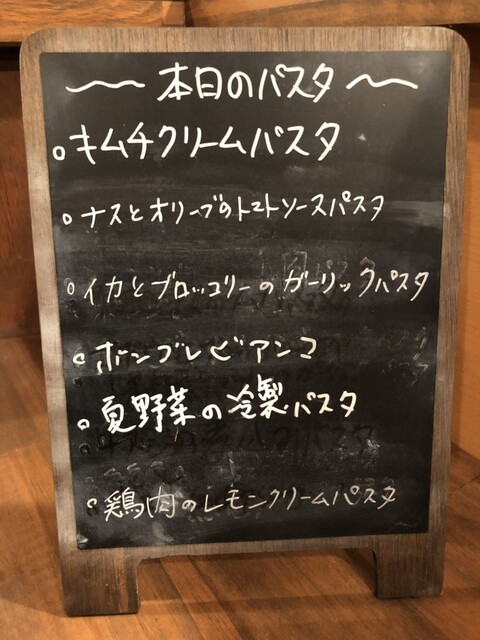 〜 本日のパスタ 〜
○キムチクリームパスタ
○ナスとオリーブのトマトソースパスタ
○イカとブロッコリーのガーリックパスタ
○ボンゴレビアンコ
○夏野菜の冷製パスタ
○鶏肉のレモンクリームパスタ